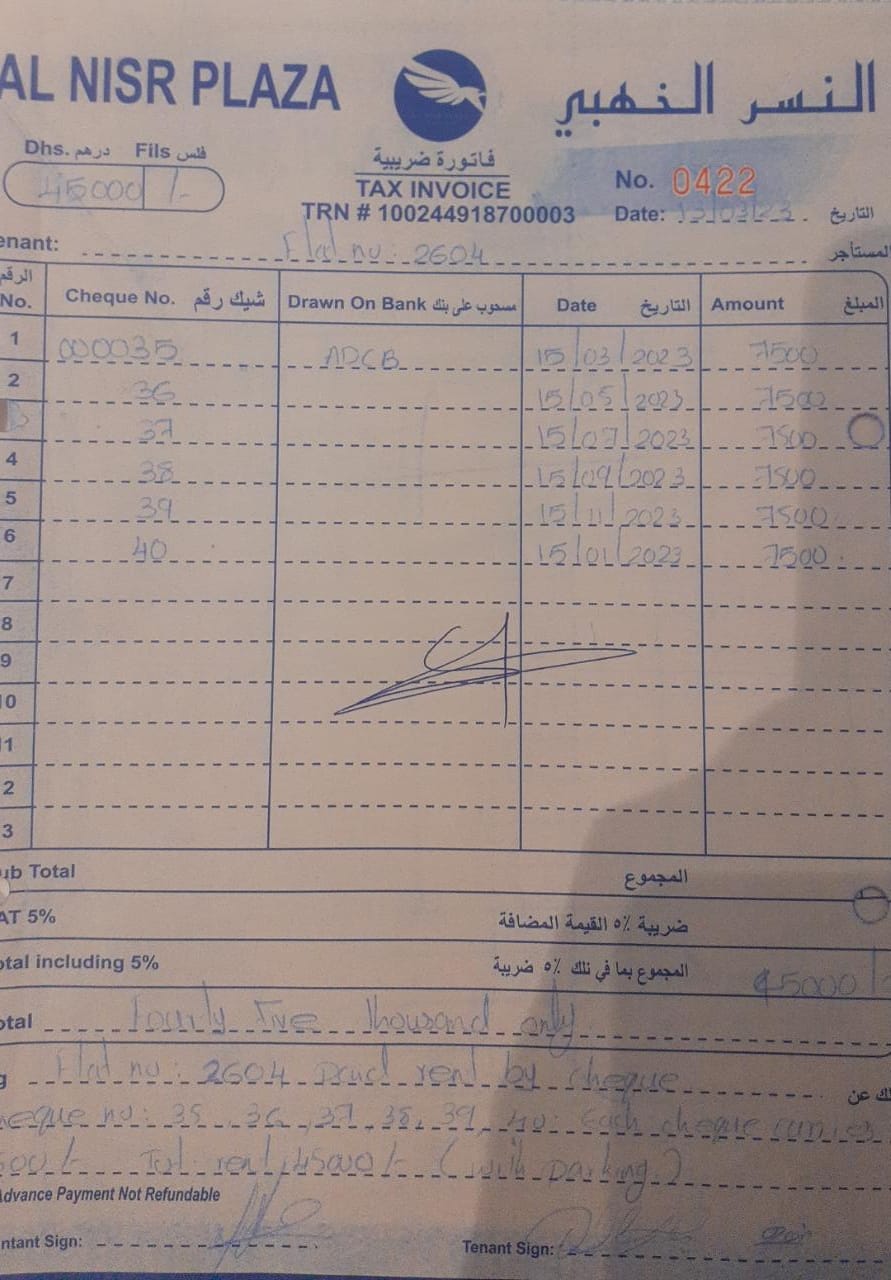 AL NISR PLAZA النسر الذهبي
Dhs. درهم Fils فلس
45000 /-
فاتورة ضريبية
TAX INVOICE
TRN # 100244918700003
No. 0422
Date: 13/03/23 التاريخ
enant: Flat no: 2604 المستأجر
الرقم No. Cheque No. شيك رقم Drawn On Bank مسحوب على بنك Date التاريخ Amount المبلغ
1 000035 ADCB 15/03/2023 7500
2 36 15/05/2023 7500
37 15/07/2023 7500
4 38 15/09/2023 7500
5 39 15/11/2023 7500
6 40 15/01/2023 7500
7
8
9
10
11
2
3
ub Total المجموع
AT 5% ضريبة ٥٪ القيمة المضافة
otal including 5% المجموع بما في ذلك ٥٪ ضريبة 45000/
otal Fourty Five thousand only
g Flat no: 2604 Paid rent by cheque لك عن
heque no: 35, 36, 37, 38, 39, 40: Each cheque carries
500/- Tot rent 45000/- (with parking)
Advance Payment Not Refundable
ntant Sign: Tenant Sign: